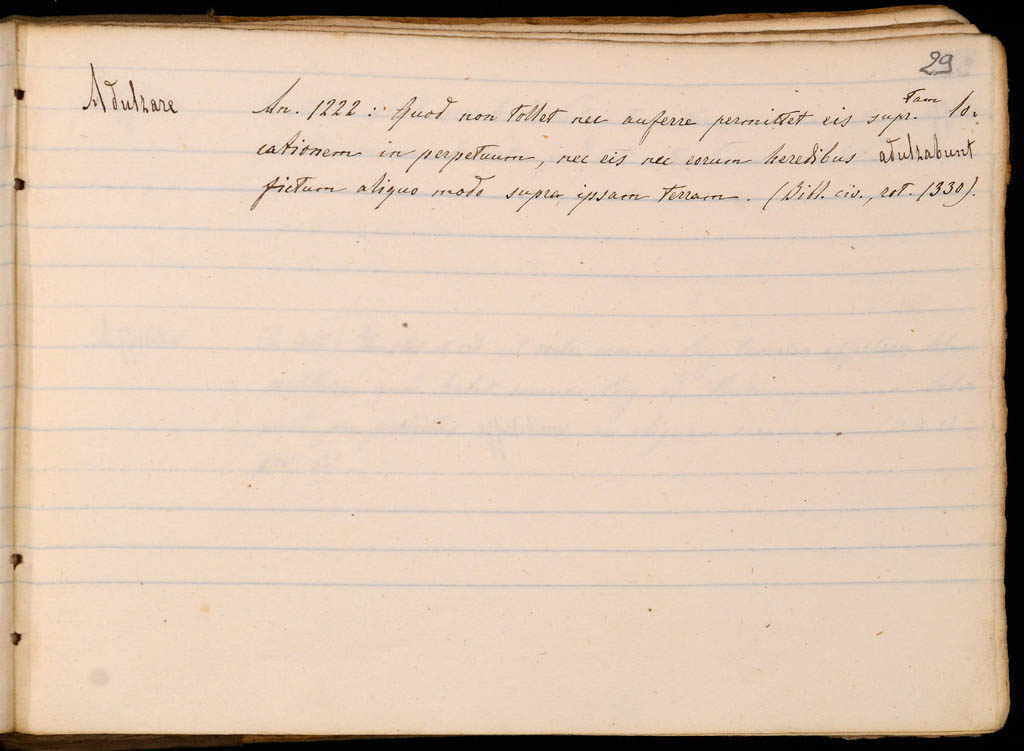 29
Adulzare
An. 1222: Quod non tollet nec auferre permittet eis supr.tam lo-
cationem in perpetuum, nec eis nec eorum heredibus adulzabunt
fictum aliquo modo supra ipsam terram. (Bibl. civ., rot. 1330).